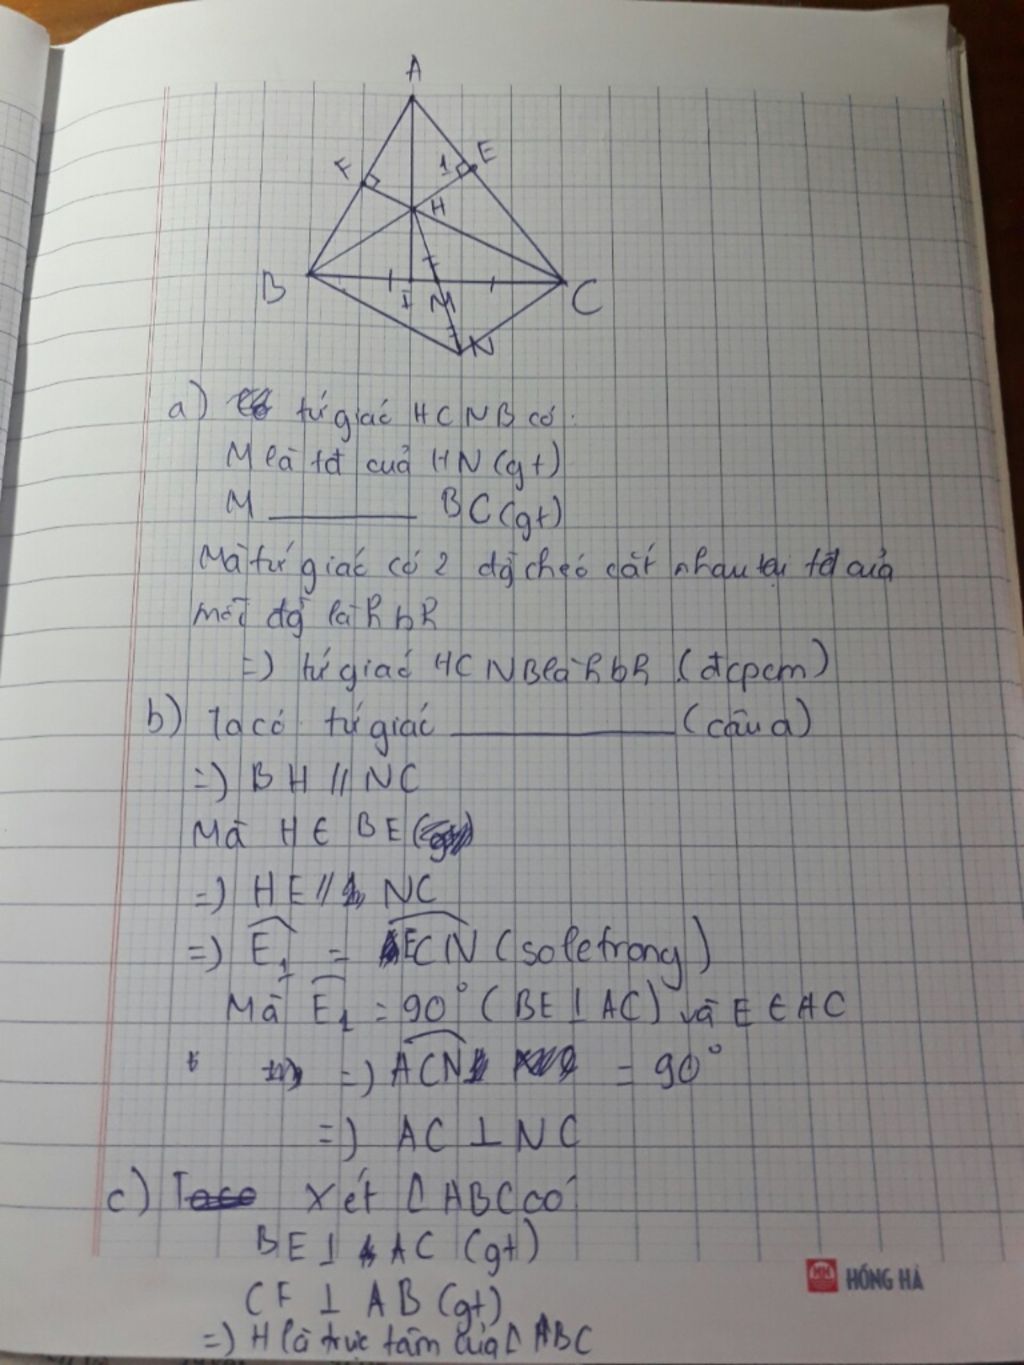 A
F
1
E
H
B
I
M
C
N
a) tứ giác HCNB có:
M là tđ của HN (gt)
M ________ BC (gt)
Mà tứ giác có 2 đg chéo cắt nhau tại tđ của
mỗi đg là hbh
=) tứ giác HCNB là hbh (đcpcm)
b) Ta có tứ giác ________ (câu a)
=) BH // NC
Mà H ∈ BE
=) HE // NC
=) Ê₁ = ECN (so le trong)
Mà Ê₁ = 90° (BE ⊥ AC) và E ∈ AC
=) ACN = 90°
=) AC ⊥ NC
c) Xét Δ ABC có
BE ⊥ AC (gt)
CF ⊥ AB (gt)
=) H là trực tâm của Δ ABC
HH HỒNG HÀ